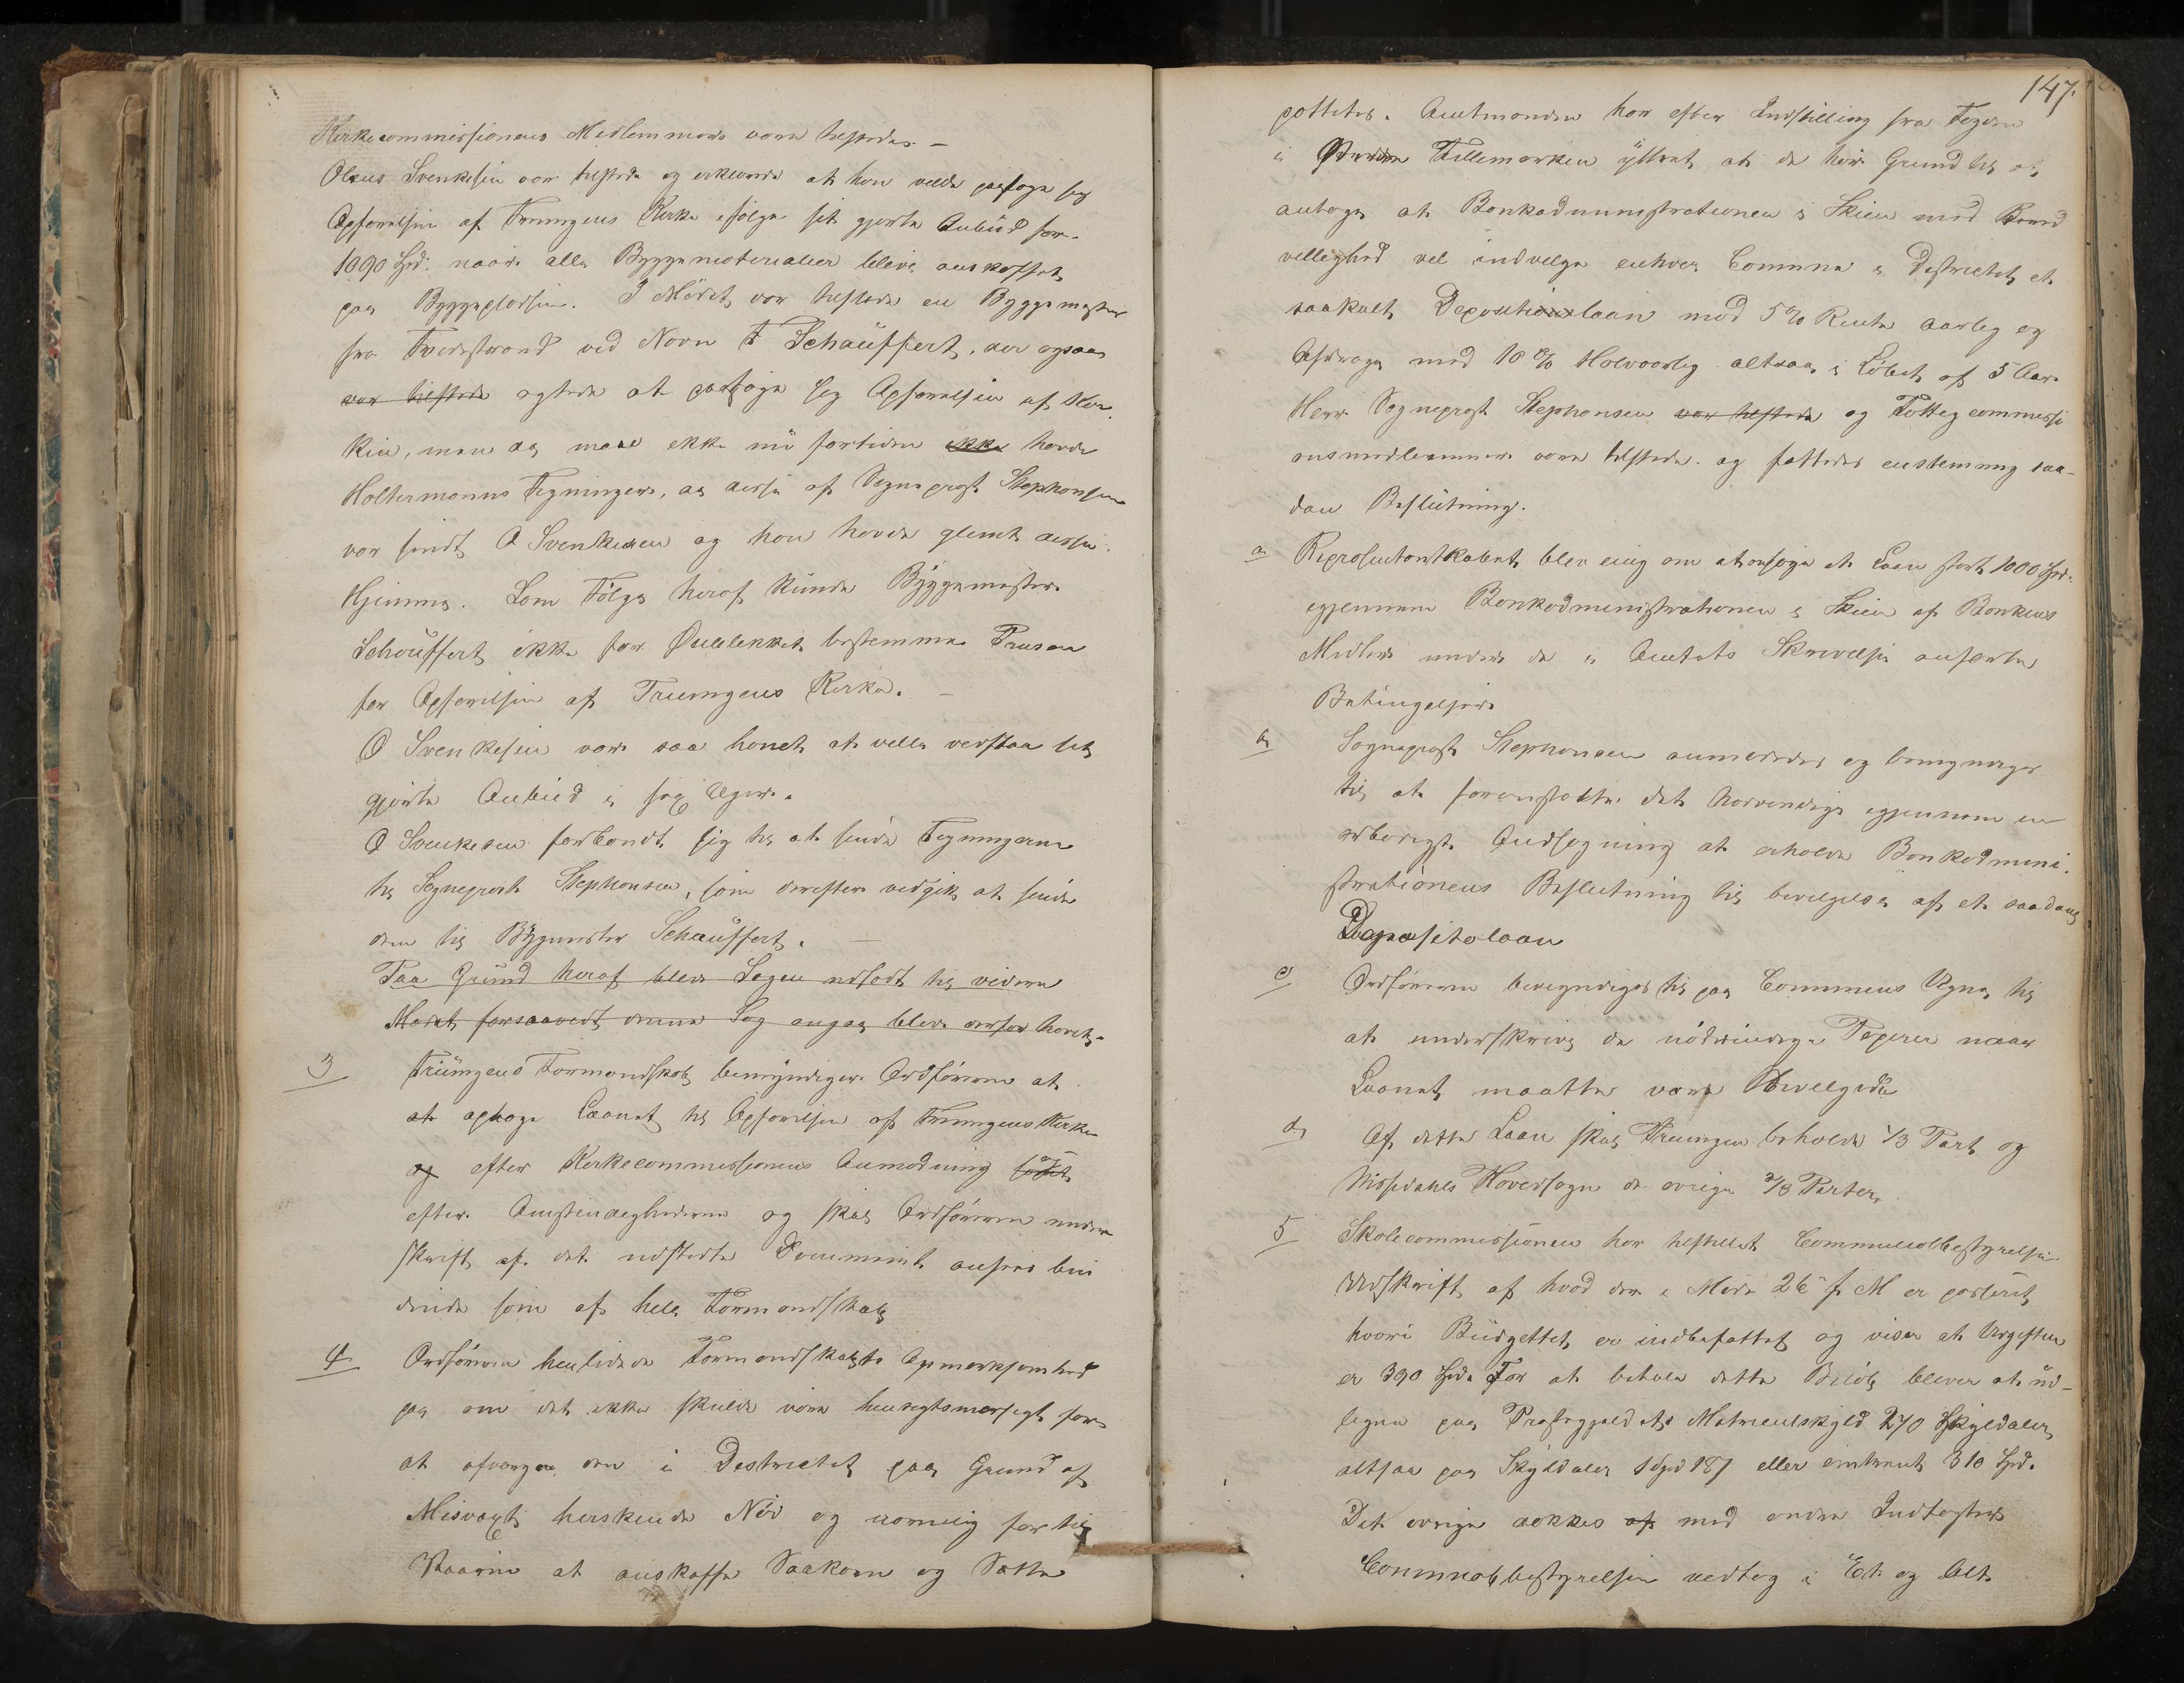 Kirkecommissionens Medlemmer vare tilstede –
Olaus Svenkesen var tilstede og erklærede at han vilde paatage sig
Opførelsen af Treungens Kirke ifølge sit gjorte Anbud for
1090 Spd: naar alle Byggematerialier bleve anskaffet
paa Byggepladsen. I Mødet var tilstede en Byggemester
fra Tvedestrand ved Navn F Schäuffert, der ogsaa
var tilstede agtede at paatage sig Opførelsen af Kir-
ken, men da man ikke nu fortiden ikke havde
Holtermanns Tegninger, da disse af Sogneprest Stephansen
var sendt O Svenkesen og han havde glemt disse
Hjemme. Som Følge heraf kunde Byggemester
Schäuffert ikke for Øieblikket bestemme Prisen
for Opførelsen af Treungens Kirke. –
O Svenkesen var saa honet at ville vedstaa sit
gjorte Anbud i sex Uger.
O Svenkesen forbandt sig til at sende Tegningerne
til Sogneprest Stephansen, som derefter vedgik at sende
dem til Bygmester Schäuffert. –
Paa Grund heraf blev Sagen udsadt til videre
Mødet forsaavidt denne Sag angaa blev derfor hævet.
3 Treungens Formandskab bemyndiger Ordføreren at
at optage Laanet til Opførelsen af Treungens Kirke
og efter Kirkecommissionens Anmodning
efter Omstændighederne og skal Ordførerens under
skrift af det udstedte Document ansees bin
dende som af hele Formandskab
4 Ordføreren henledede Formandskabets Opmærksomhed
paa om det ikke skulde være hensigtsmæssigt for
at afværge den i Destrictet paa Grund af
Misvæxt herskende Nød og navnlig for til
Vaaren at anskaffe Saakorn og Sætte
147.
potteter. Amtmanden har efter Indstilling fra Fogden
i Tellemarken yttret at de har Grund til at
antage at Bankadministrationen i Skien med Bered
villighed vil indvilge enhver Comune i Destrictet et
saakalt Depositionslaan mod 5% Rente aarlig og
Afdrage med 10% Halvaarlig altsaa i Løbet af 5 Aar.
Herr Sogneprest Stephansen var tilstede og Fattigcommissi
onsmedlemmer vare tilstede og fattedes enstemmig saa-
dan Beslutning.
a Representantskabet blev enig om at ansøge et Laan stort 1000 Spd.
igjennem Bankadministrationen i Skien af Bankens
Midler under de i Amtets Skrivelse anførte
Betingelser
b Sogneprest Stephansen anmodedes og bemyndiges
til at foranstalte det nødvendige igjennem en
ærbødigst Ansøgning at erholde Bankadmini-
strationens Beslutning til bevilgelse af et saadant
Depositolaan
c Ordføreren bemyndiges til paa Communens Vegne til
at underskrive de nødvendige Papirer naar
Laanet maatte være Bevilgede
d Af dette Laan skal Treungen beholde 1/3 Part og
Nissedahls Hovedsogn de øvrige 2/3 Parter.
5 Skolecommissionen har tilstillet Communalbestyrelsen
Udskrift af hvad der i Møde 26 f M er passeret,
hvori Budgettet er indbefattet og viser at Udgiften
er 390 Spd. For at betale dette Beløb bliver at ud-
ligne paa Præstegjeldets Matriculskyld 270 Skyldaler,
altsaa paa Skyldaler 1 Spd 18/ eller omtrent 310 Spd.
Det øvrige dækkes af med andre Indtægter
Communalbestyrelsen vedtog i Et og Alt